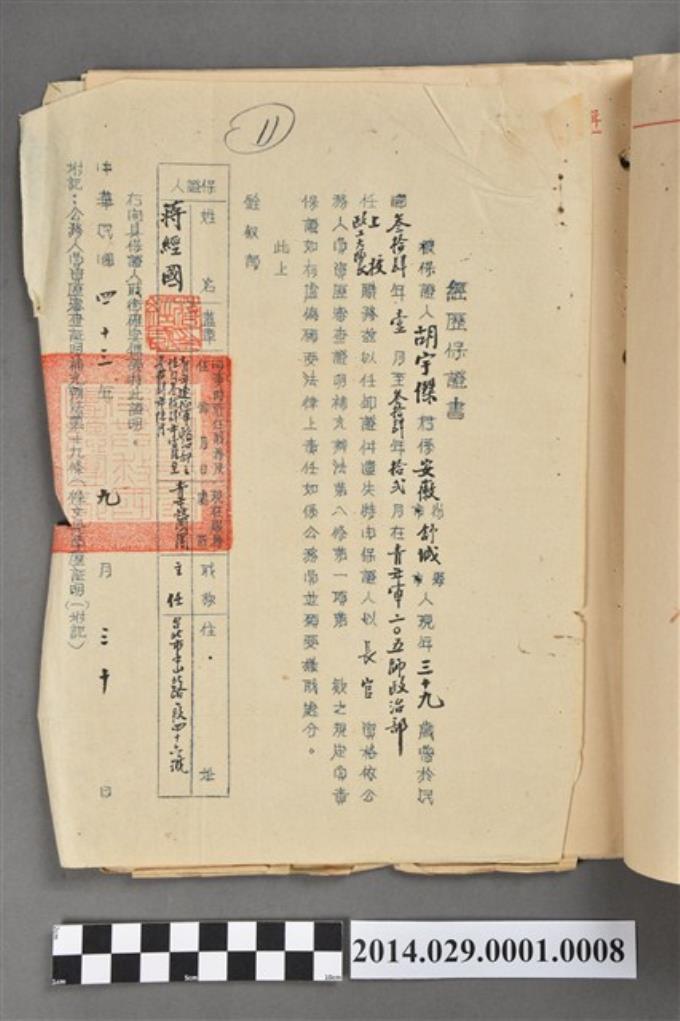 11
經歷保證書
被保證人胡宇傑 係安徽省市舒城縣市人現年三十九歲曾於民
國叁拾肆年壹月至叁拾肆年拾貳月在青年軍二〇五師政治部
任上校政工大隊長職務茲以任卸證件遺失特由保證人以長官資格依公
務人員資歷審查證明補充辦法第八條第一項第 款之規定負責
保證如有虛偽願受法律上責任如係公務員並願受撤職處分。
此上
銓敘部
保證人
姓名 蓋章 同事時所任職務及任命月日 現在服務處所 職務 住址
蔣經國 青年救國團 主任 台北市中山北路 段四十六號
右開具保證人 確實 此證明。
中華民國四十三年九月三十日
附記：公務人員資歷審查証明補充辦法第十九條（條文見學歷証明（一）附記）
2014.029.0001.0008
1cm 5cm 10cm